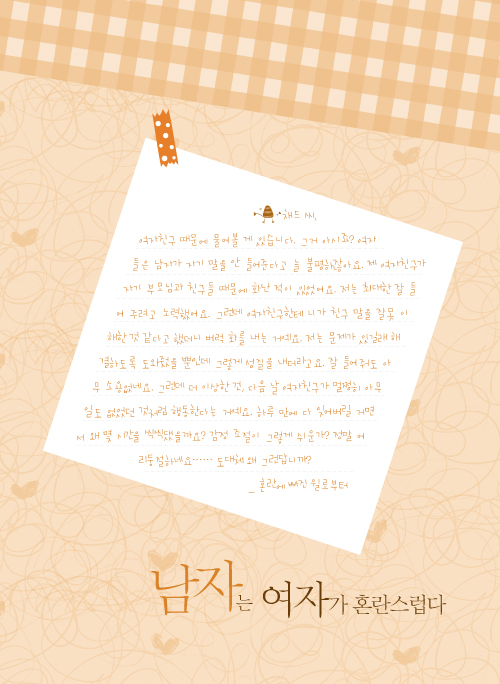 채드 씨,
여자친구 때문에 물어볼 게 있습니다. 그거 아시죠? 여자
들은 남자가 자기 말을 안 들어준다고 늘 불평하잖아요. 제 여자친구가
자기 부모님과 친구들 때문에 화난 적이 있었어요. 저는 최대한 잘 들
어 주려고 노력했어요. 그런데 여자친구한테 니가 친구 말을 잘못 이
해한 것 같다고 했더니 버럭 화를 내는 거예요. 저는 문제가 있길래 해
결하도록 도와줬을 뿐인데 그렇게 성질을 내더라고요. 잘 들어줘도 아
무 소용없네요. 그런데 더 이상한 건, 다음 날 여자친구가 멀쩡히 아무
일도 없었던 것처럼 행동한다는 거예요. 하루 만에 다 잊어버릴 거면
서 왜 몇 시간을 씩씩댔을까요? 감정 조절이 그렇게 쉬운가? 정말 어
리둥절하네요…… 도대체 왜 그런답니까?
_ 혼란에 빠진 윌로부터
남자는 여자가 혼란스럽다